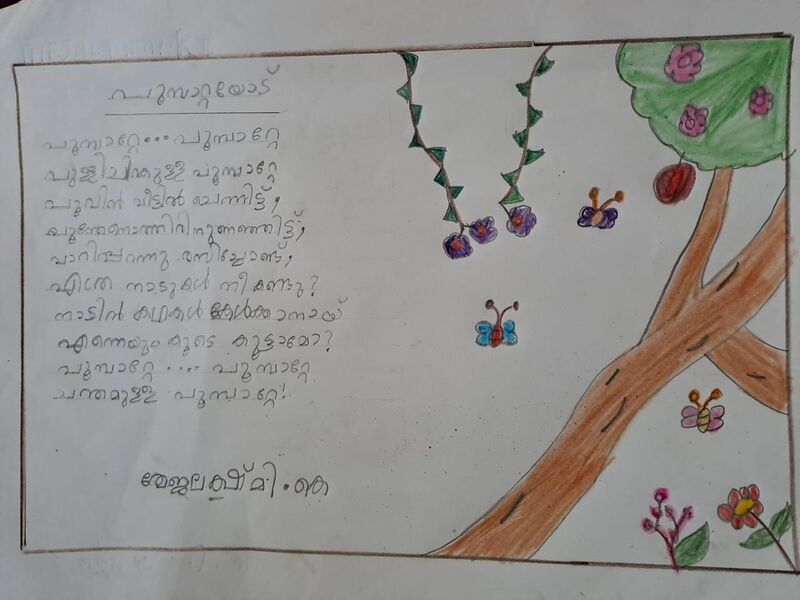 പൂമ്പാറ്റയോട്
പൂമ്പാറ്റേ... പൂമ്പാറ്റേ
പുള്ളിചിറകുള്ള പൂമ്പാറ്റേ
പൂവിൻ വീട്ടിൽ ചെന്നിട്ട്,
പൂന്തേനൊത്തിരിനുണഞ്ഞിട്ട്,
പാറിപ്പറന്നു രസിച്ചോണ്ട്,
എത്ര നാടുകൾ നീ കണ്ടു?
നാടിൻ കഥകൾ കേൾക്കാനായ്
എന്നെയും കൂടെ കൂട്ടാമോ?
പൂമ്പാറ്റേ .... പൂമ്പാറ്റേ
ചന്തമുള്ള പൂമ്പാറ്റേ!
തേജലക്ഷ്മി. കെ